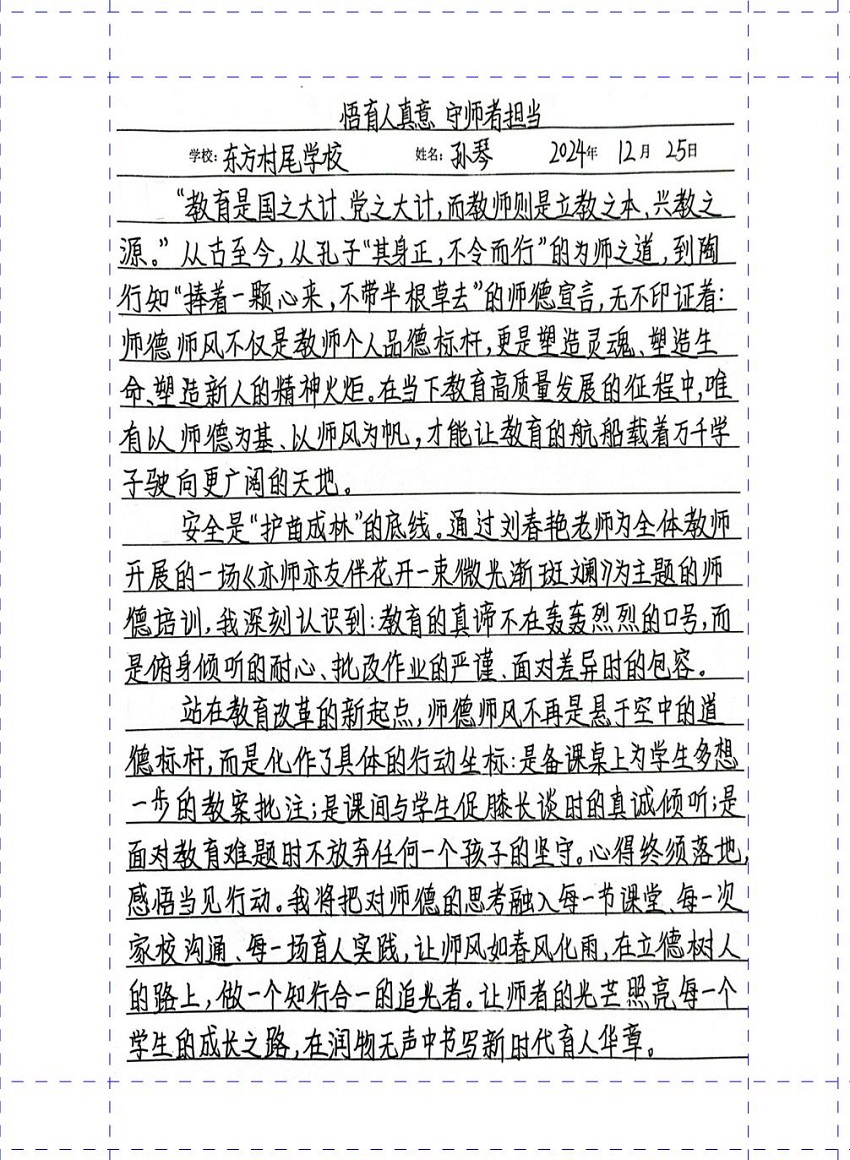 悟育人真意 守师者担当
学校:东方村尾学校 姓名:孙琴 2024年 12月 25日
“教育是国之大计、党之大计,而教师则是立教之本,兴教之
源。”从古至今,从孔子“其身正,不令而行”的为师之道,到陶
行知“捧着一颗心来,不带半根草去”的师德宣言,无不印证着:
师德师风不仅是教师个人品德标杆,更是塑造灵魂、塑造生
命、塑造新人的精神火炬。在当下教育高质量发展的征程中,唯
有以师德为基、以师风为帆,才能让教育的航船载着万千学
子驶向更广阔的天地。
安全是“护苗成林”的底线。通过刘春艳老师为全体教师
开展的一场《亦师亦友伴花开一束微光渐斑斓》为主题的师
德培训,我深刻认识到:教育的真谛不在轰轰烈烈的口号,而
是俯身倾听的耐心、批改作业的严谨、面对差异时的包容。
站在教育改革的新起点,师德师风不再是悬于空中的道
德标杆,而是化作了具体的行动坐标:是备课桌上为学生多想
一步的教案批注;是课间与学生促膝长谈时的真诚倾听;是
面对教育难题时不放弃任何一个孩子的坚守。心得终须落地,
感悟当见行动。我将把对师德的思考融入每一节课堂、每一次
家校沟通、每一场育人实践,让师风如春风化雨,在立德树人
的路上,做一个知行合一的追光者。让师者的光芒照亮每一个
学生的成长之路,在润物无声中书写新时代育人华章。